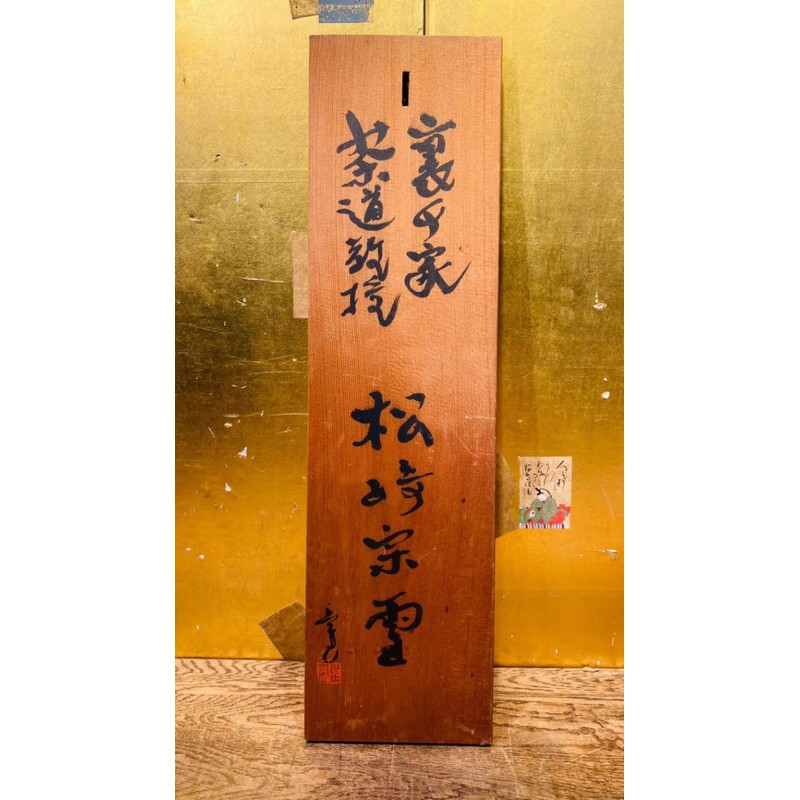 裏千家
茶道教授
松崎宗雪